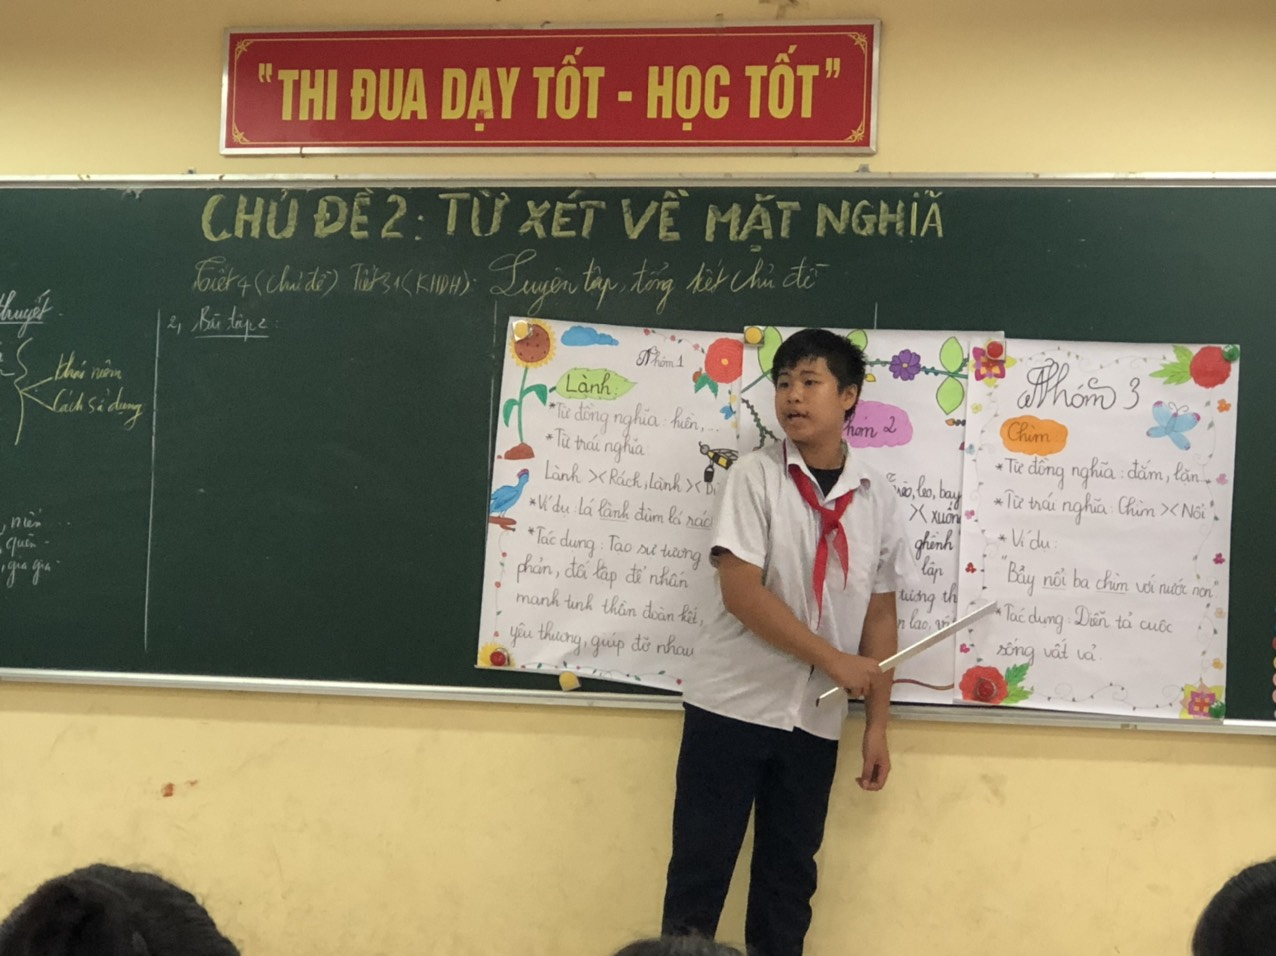 "THI ĐUA DẠY TỐT - HỌC TỐT"
CHỦ ĐỀ 2: TỪ XÉT VỀ MẶT NGHĨÃ
Tiết 4 (Chủ đề) Tiết 31 (KHDH): Luyện tập, tổng kết chủ đề
thuyết
Khái niệm
Cách sử dụng
quên
gra gra
2, Bài tập 2:
Nhóm 1
Lành
*Từ đồng nghĩa: hiền,...
*Từ trái nghĩa
Lành >< Rách, Lành ><
*Ví dụ: Lá lành đùm lá rác
*Tác dụng: Tạo sự tương
phản, đối lập để nhấn
mạnh tinh thần đoàn kết,
yêu thương, giúp đỡ nhau
hóm 2
rèo, leo, bay
>< xuốn
ghềnh
lập
tượng th
n lao,
Nhóm 3
Chìm
*Từ đồng nghĩa: đắm, lặn...
*Từ trái nghĩa: Chìm >< Nổi
*Ví dụ:
"Bảy nổi ba chìm với nước non
*Tác dụng: Diễn tả cuộc
sống vất vả.